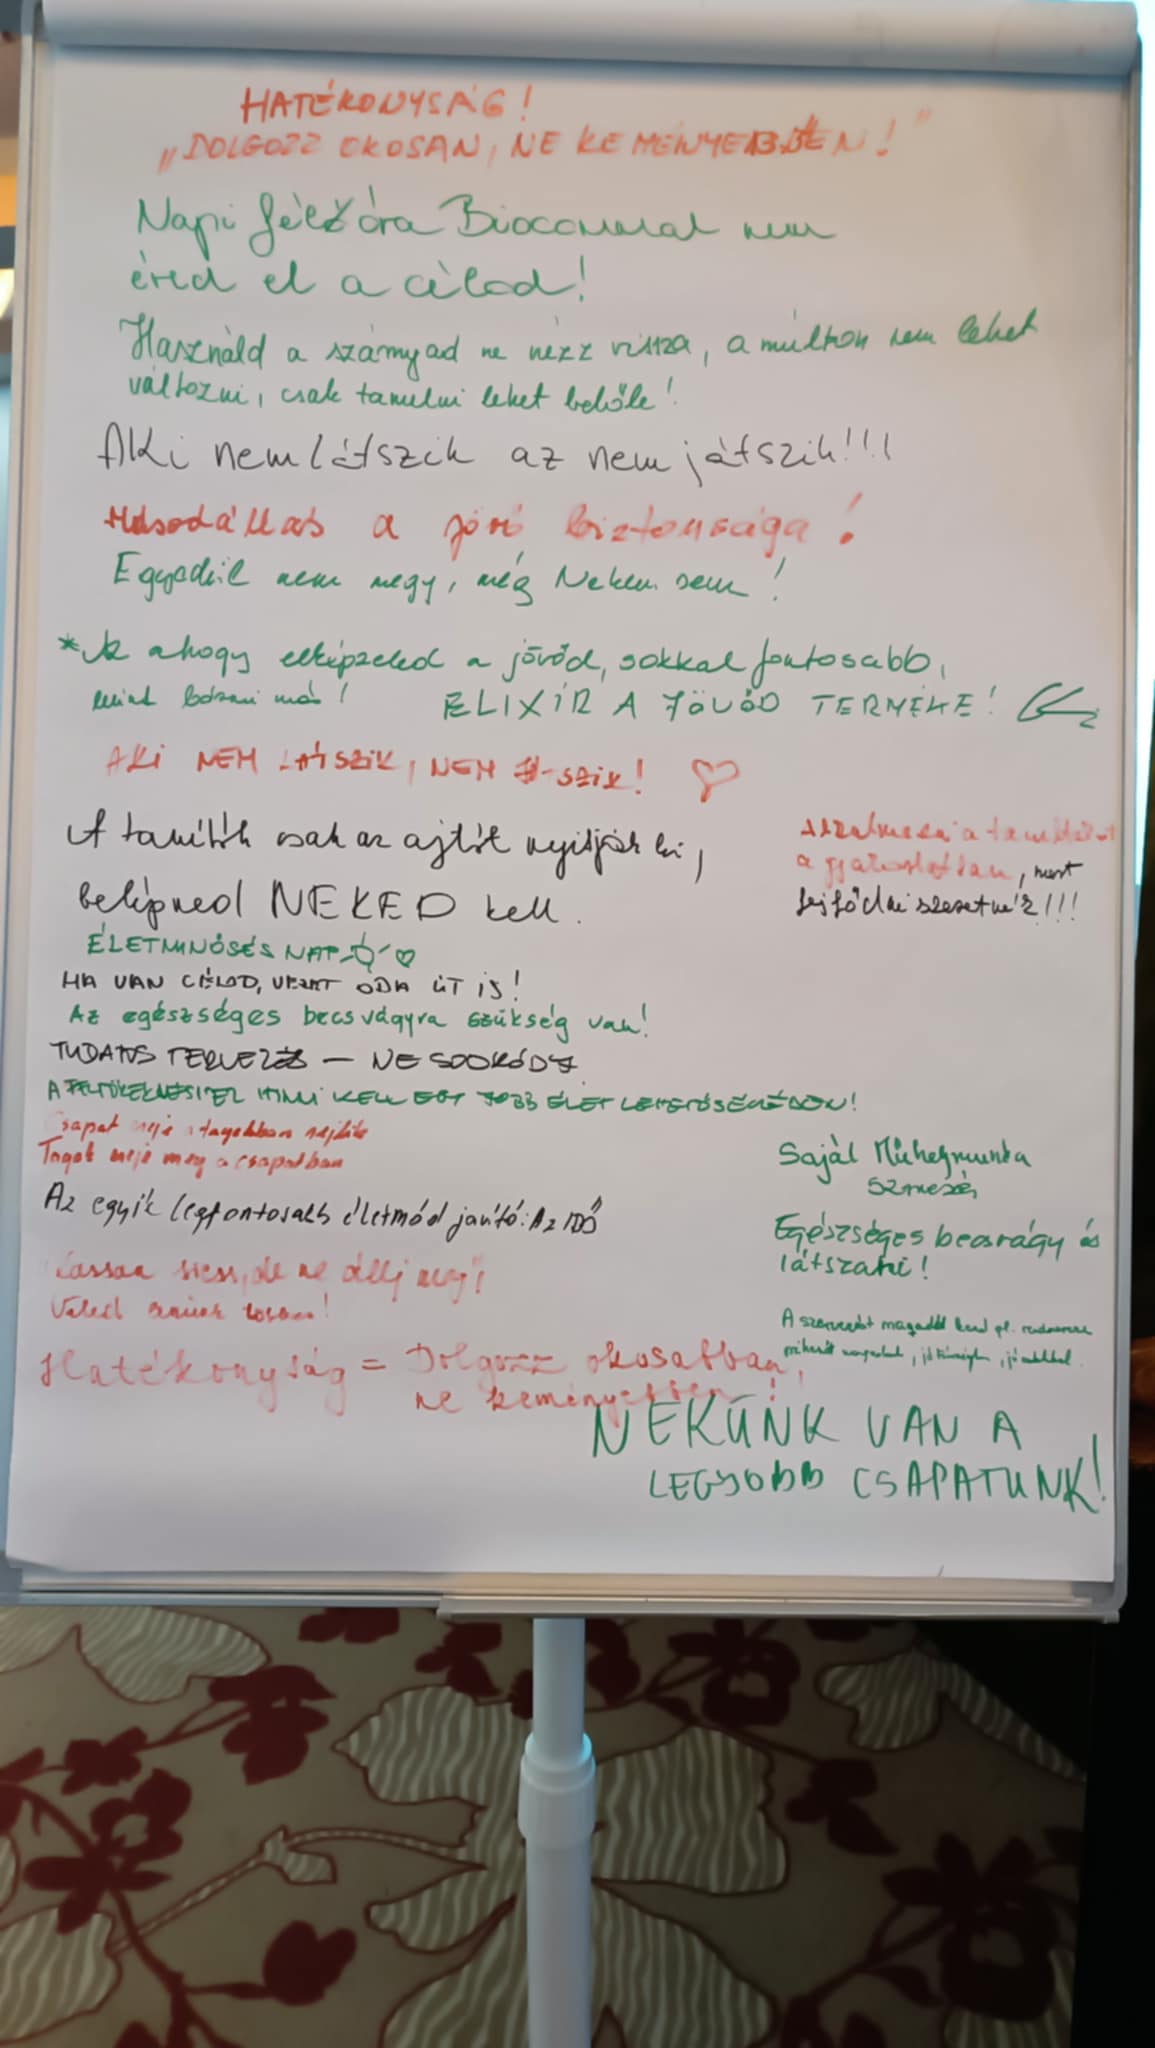 HATÉKONYSÁG!
"DOLGOZZ OKOSAN, NE KEMÉNYEBBEN!"
Napi fél óra Biocommal nem
éred el a célod!
Használd a szárnyad ne nézz vissza, a múlton nem lehet
változni, csak tanulni lehet belőle!
AKi nem látszik az nem játszik!!!!
Másodállás a jövő biztonsága!
Egyedül nem megy, még Nekem sem!
*Az ahogy elképzeled a jövőd, sokkal fontosabb,
mint bármi más! ELIXÍR A JÖVŐD TERMÉKE!
AKi NEM LÁTSZIK, NEM -SZIK!
A tanítók csak az ajtót nyitják ki,
belépned NEKED kell.
Alkalmazni a tanultakat
a gyakorlatban, mert
fejlődni szeretnék!!!
ÉLETMINŐSÉG NAP
HA VAN CÉLOD, VEZET ODA ÚT IS!
Az egészséges becsvágyra szükség van!
TUDATOS TERVEZÉS — NE SODRÓDJ
A KELL EGY JOBB ÉLET LEHETŐSÉGÉBEN!
Csapat ereje a tagokban rejlik
Tagok ereje meg a csapatban
Az egyik legfontosabb életmód javító: Az IDŐ
Saját Műhelymunka
szervezés
Egészséges becsvágy és
látszani!
Lassan siess, de ne állj meg!
Veled
A szervezést magaddal kezd pl.
Hatékonyság = Dolgozz okosabban,
ne keményebben!
NEKÜNK VAN A
LEGJOBB CSAPATUNK!